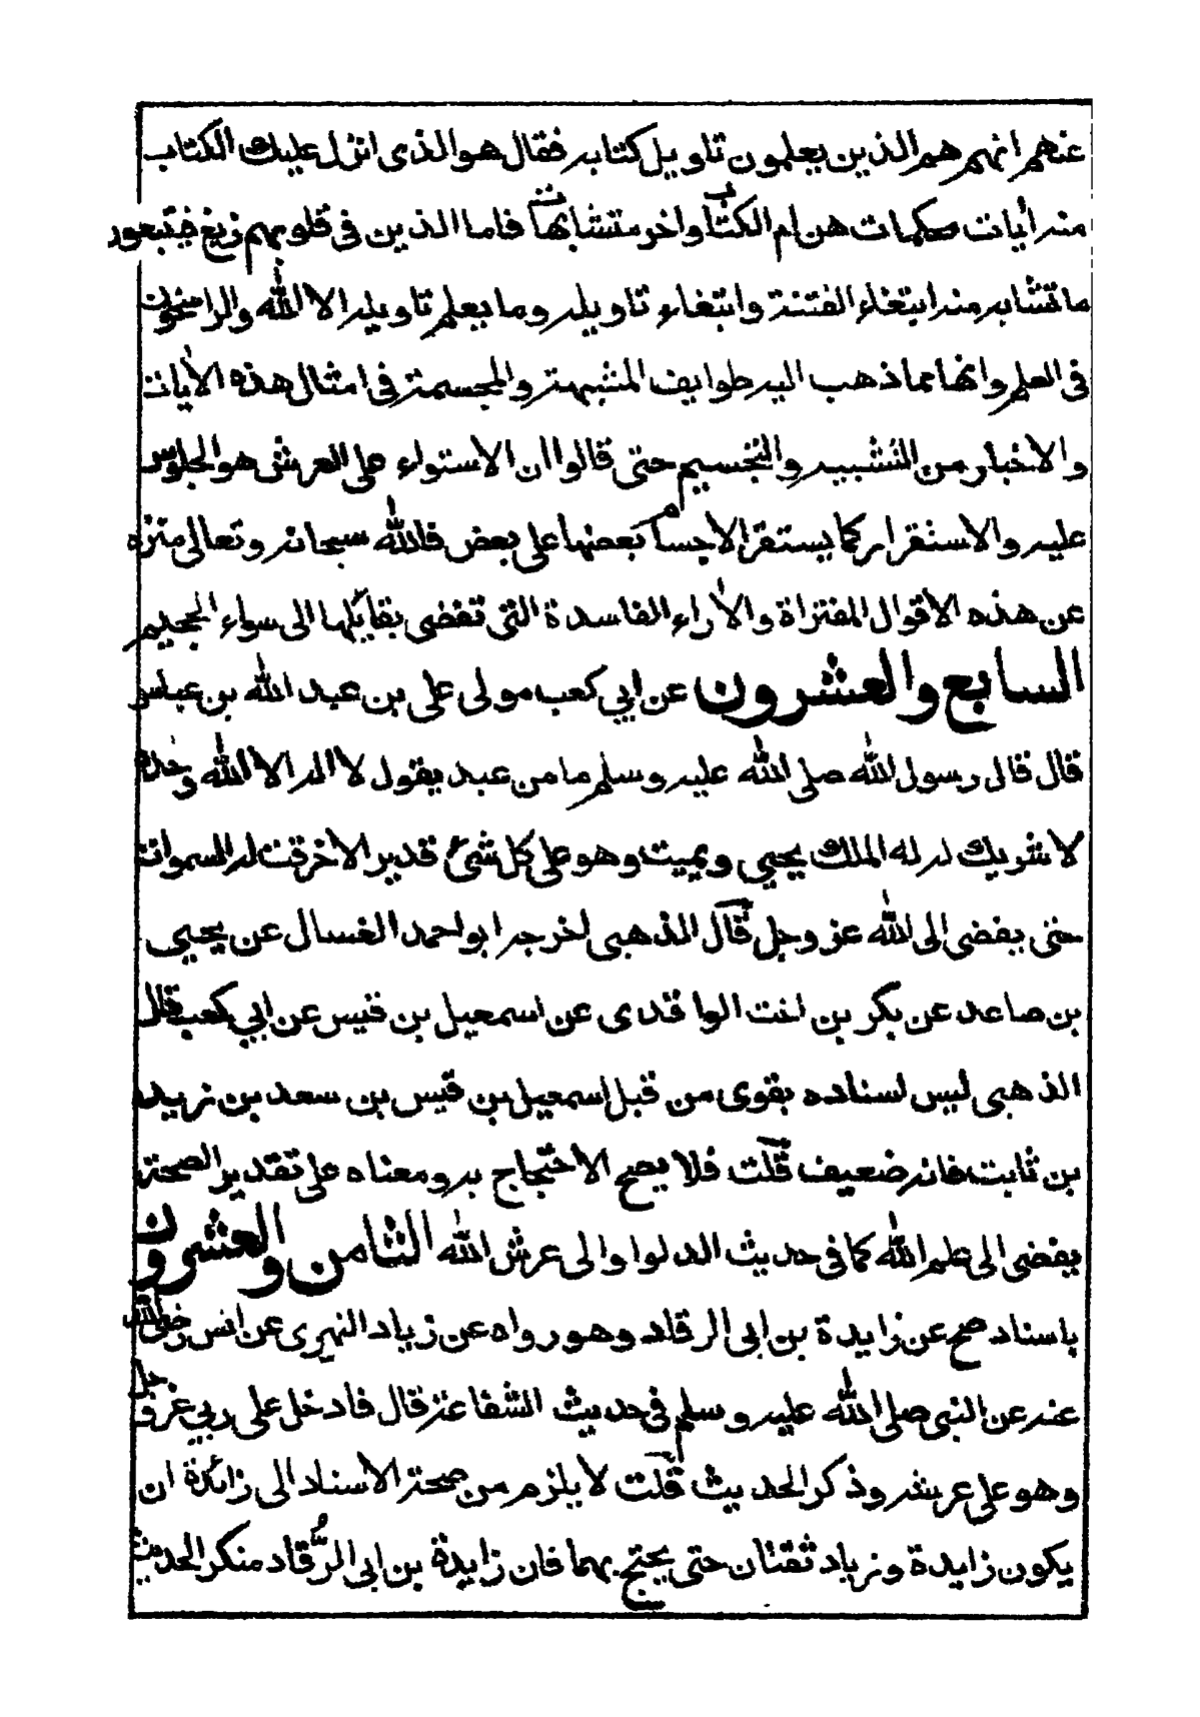 عنهم انهم هم الذين يعلمون تاويل كتابه فقال هو الذى انزل عليك الكتاب
منه أيات محكمات هن ام الكتاب واخر متشابهات فاما الذين فى قلوبهم زيغ فيتبعون
ما تشابه منه ابتغاء الفتنة وابتغاء تاويله وما يعلم تاويله الا الله والراسخون
فى العلم وانها مما ذهب اليه طوايف المشبهة والمجسمة فى امثال هذه الأيات
والاخبار من التشبيه والتجسيم حتى قالوا ان الاستواء على العرش هو الجلوس
عليه والاستقرار كما يستقر الاجسام بعضها على بعض فالله سبحانه وتعالى منزه
عن هذه الاقوال المفتراة والأراء الفاسدة التى تفضى بقايلها الى سواء الجحيم
السابع والعشرون عن ابي كعب مولى على بن عبد الله بن عباس
قال قال رسول الله صلى الله عليه وسلم ما من عبد يقول لا اله الا الله وحده
لا شريك له له الملك يحيي ويميت وهو على كل شئ قدير الا خرقت له السموات
حتى يفضى الى الله عز وجل قال الذهبى اخرجه ابو احمد الغسال عن يحيي
بن صاعد عن بكر بن اخت الواقدى عن اسمعيل بن قيس عن ابي كعب قال
الذهبى ليس اسناده بقوى من قبل اسمعيل بن قيس بن سعد بن زيد
بن ثابت فانه ضعيف قلت فلا يصح الاحتجاج به ومعناه على تقدير الصحة
يفضى الى علم الله كما فى حديث الدلو او الى عرش الله الثامن والعشرون
باسناد صح عن زايدة بن ابى الرقاد وهو رواه عن زياد النميرى عن انس رضى الله
عنه عن النبى صلى الله عليه وسلم فى حديث الشفاعة قال فادخل على ربي عز وجل
وهو على عرشه وذكر الحديث قلت لا يلزم من صحة الاسناد الى زائدة ان
يكون زايدة وزياد ثقتان حتى يحتج بهما فان زايدة بن ابى الرُّقاد منكر الحديث